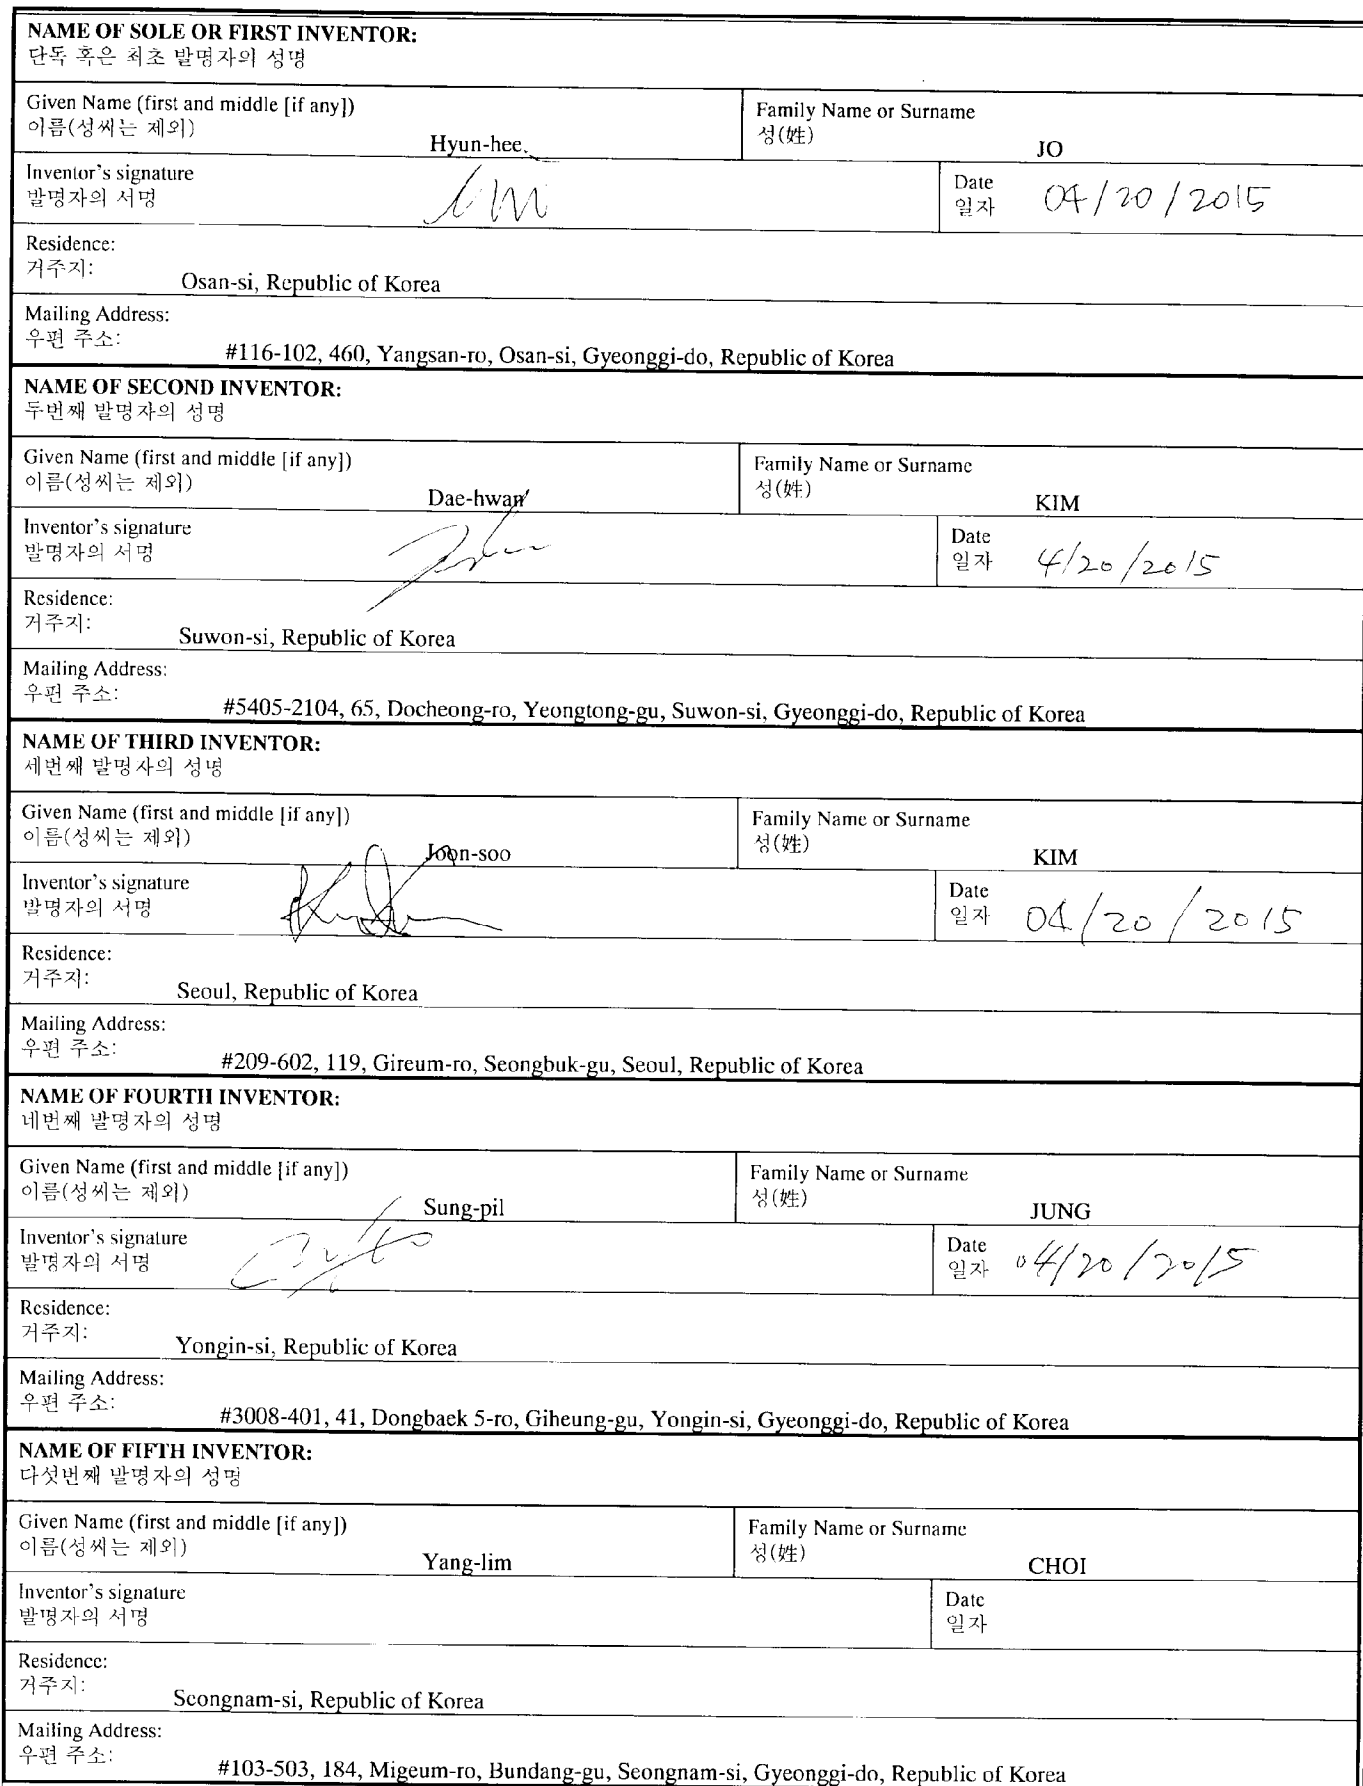 NAME OF SOLE OR FIRST INVENTOR:
단독 혹은 최초 발명자의 성명
Given Name (first and middle [if any])
이름(성씨는 제외)
Hyun-hee
Family Name or Surname
성(姓)
JO
Inventor's signature
발명자의 서명
Date
일자
04/20/2015
Residence:
거주지:
Osan-si, Republic of Korea
Mailing Address:
우편 주소:
#116-102, 460, Yangsan-ro, Osan-si, Gyeonggi-do, Republic of Korea
NAME OF SECOND INVENTOR:
두번째 발명자의 성명
Given Name (first and middle [if any])
이름(성씨는 제외)
Dae-hwan
Family Name or Surname
성(姓)
KIM
Inventor's signature
발명자의 서명
Date
일자
4/20/2015
Residence:
거주지:
Suwon-si, Republic of Korea
Mailing Address:
우편 주소:
#5405-2104, 65, Docheong-ro, Yeongtong-gu, Suwon-si, Gyeonggi-do, Republic of Korea
NAME OF THIRD INVENTOR:
세번째 발명자의 성명
Given Name (first and middle [if any])
이름(성씨는 제외)
Joon-soo
Family Name or Surname
성(姓)
KIM
Inventor's signature
발명자의 서명
Date
일자
04/20/2015
Residence:
거주지:
Seoul, Republic of Korea
Mailing Address:
우편 주소:
#209-602, 119, Gireum-ro, Seongbuk-gu, Seoul, Republic of Korea
NAME OF FOURTH INVENTOR:
네번째 발명자의 성명
Given Name (first and middle [if any])
이름(성씨는 제외)
Sung-pil
Family Name or Surname
성(姓)
JUNG
Inventor's signature
발명자의 서명
Date
일자
04/20/2015
Residence:
거주지:
Yongin-si, Republic of Korea
Mailing Address:
우편 주소:
#3008-401, 41, Dongbaek 5-ro, Giheung-gu, Yongin-si, Gyeonggi-do, Republic of Korea
NAME OF FIFTH INVENTOR:
다섯번째 발명자의 성명
Given Name (first and middle [if any])
이름(성씨는 제외)
Yang-lim
Family Name or Surname
성(姓)
CHOI
Inventor's signature
발명자의 서명
Date
일자
Residence:
거주지:
Seongnam-si, Republic of Korea
Mailing Address:
우편 주소:
#103-503, 184, Migeum-ro, Bundang-gu, Seongnam-si, Gyeonggi-do, Republic of Korea